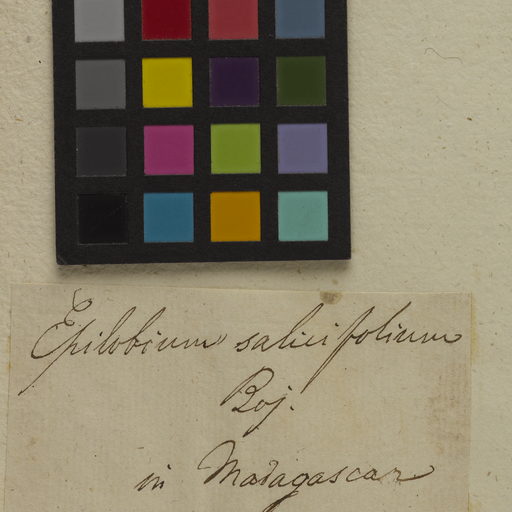 Epilobium salicifolium
Boj.
in Madagascar